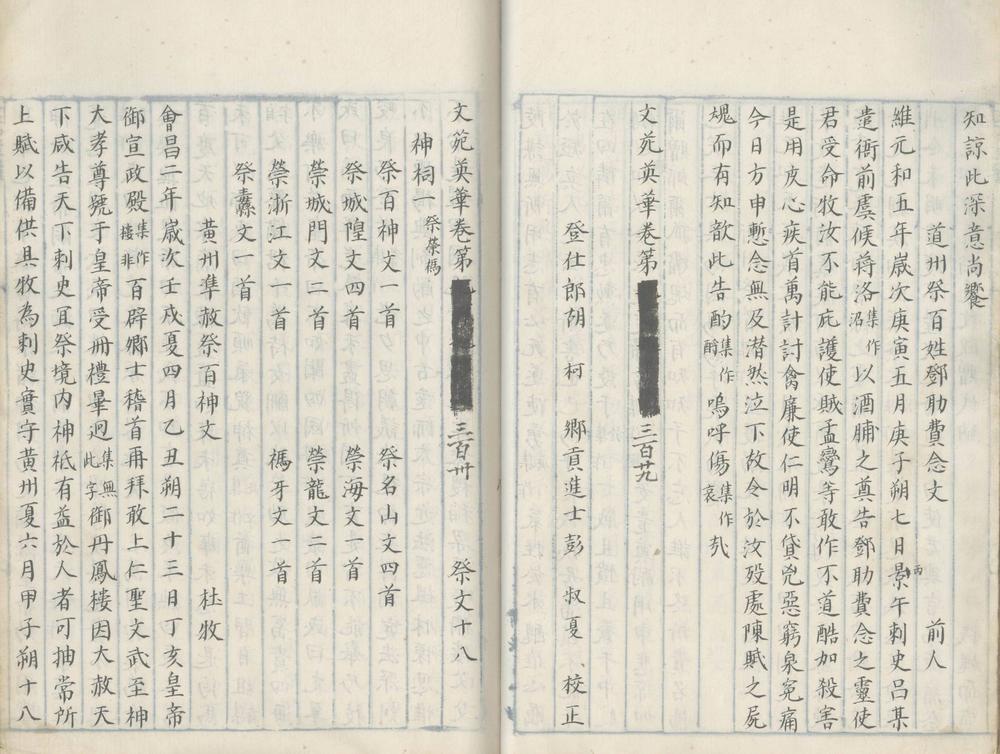 知諒此深意尚饗
道州祭百姓鄧助費念文 前人
維元和五年歲次庚寅五月庚子朔七日景丙午刺史呂某
遣衙前虞候蔣洛集作沼以酒脯之奠告鄧助費念之靈使
君受命牧汝不能庇護使賊孟鸞等敢作不道酷加殺害
是用疚心疾首萬計討禽廉使仁明不貸兇惡窮泉寃痛
今日方申慙念無及潸然泣下故令於汝歿處陳賊之屍
魂而有知歆此告酌集作酹嗚呼傷集作哀㢤
文苑英華卷第 三百廿九
登仕郎胡柯 鄉貢進士彭叔夏 校正
文苑英華卷第 三百卅 祭文十八
神祠一祭禜禡
祭百神文一首 祭名山文四首
祭城隍文四首 禜海文一首
禜城門文二首 禜龍文二首
禜浙江文一首 禡牙文一首
祭纛文一首
黃州準赦祭百神文 杜牧
會昌二年歲次壬戌夏四月乙丑朔二十三日丁亥皇帝
御宣政殿集作樓非百辟卿士稽首再拜敢上仁聖文武至神
大孝尊號于皇帝受冊禮畢迴集無此字御丹鳳樓因大赦天
下咸告天下刺史宜祭境內神祗有益於人者可抽常所
上賦以備供具牧為刺史實守黃州夏六月甲子朔十八